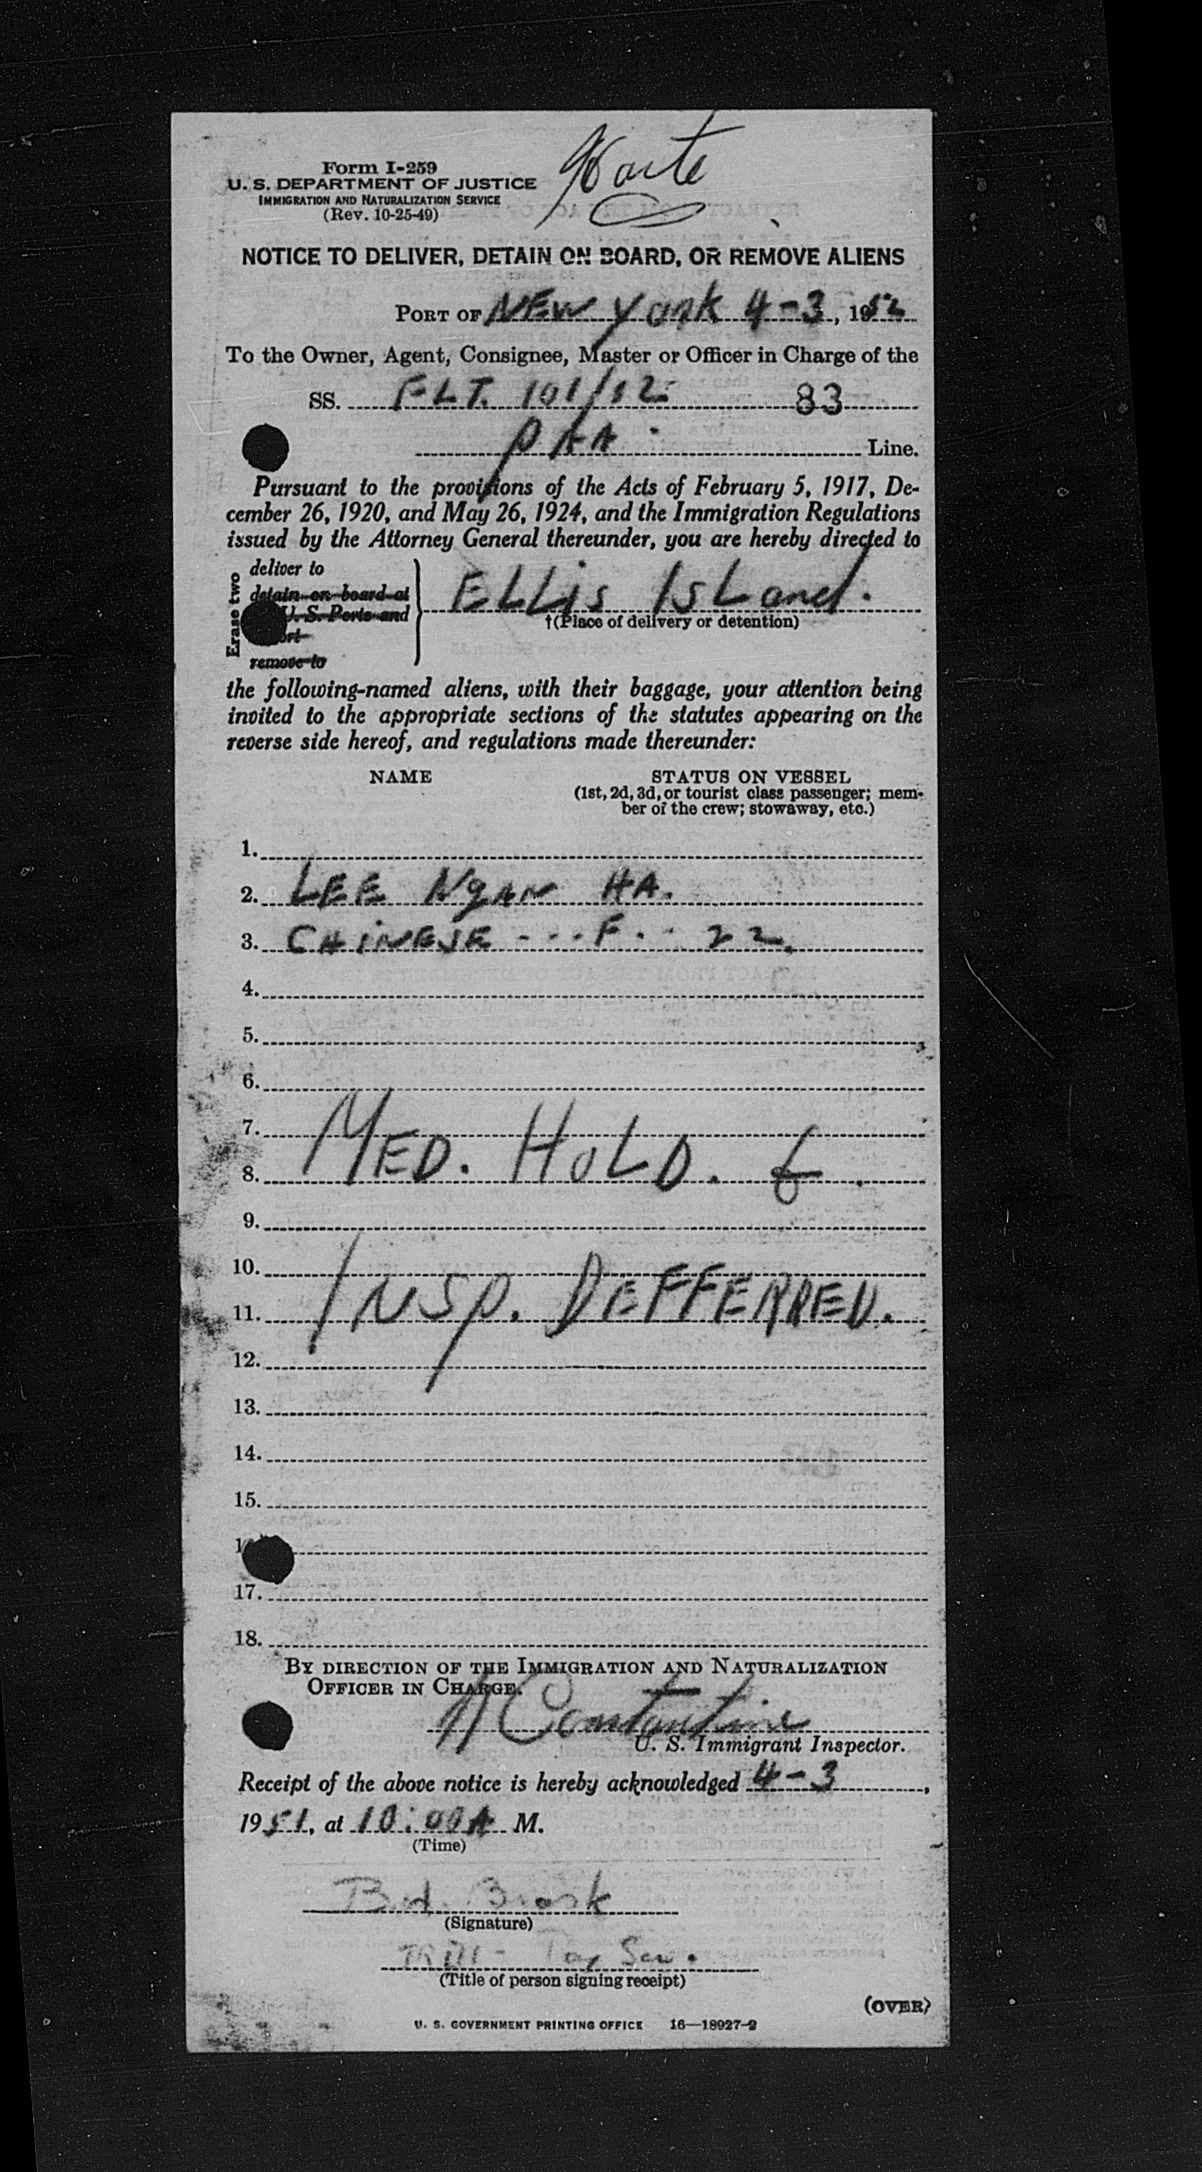 Form I-259
U. S. DEPARTMENT OF JUSTICE
IMMIGRATION AND NATURALIZATION SERVICE
(Rev. 10-25-49)
NOTICE TO DELIVER, DETAIN ON BOARD, OR REMOVE ALIENS
PORT OF NEW York 4-3, 1952
To the Owner, Agent, Consignee, Master or Officer in Charge of the
SS. FLT. 101/ 83
PAA Line.
Pursuant to the provisions of the Acts of February 5, 1917, De-
cember 26, 1920, and May 26, 1924, and the Immigration Regulations
issued by the Attorney General thereunder, you are hereby directed to
Erase two
deliver to
detain on board at
U. S. Ports and
remove to
ELLis IsLand.
†(Place of delivery or detention)
the following-named aliens, with their baggage, your attention being
invited to the appropriate sections of the statutes appearing on the
reverse side hereof, and regulations made thereunder:
NAME STATUS ON VESSEL
(1st, 2d, 3d, or tourist class passenger; mem-
ber of the crew; stowaway, etc.)
1.
2. LEE NgAN HA.
3. CHiNESE - - - F. - - 22.
4.
5.
6.
7.
8. MED. HoLD. &.
9.
10.
11. INSp. DEFFERRED.
12.
13.
14.
15.
17.
18.
BY DIRECTION OF THE IMMIGRATION AND NATURALIZATION
OFFICER IN CHARGE.
Constantine
U. S. Immigrant Inspector.
Receipt of the above notice is hereby acknowledged 4-3,
1951, at 10:00 A M.
(Time)
(Signature)
(Title of person signing receipt)
(OVER)
U. S. GOVERNMENT PRINTING OFFICE 16—18927-2